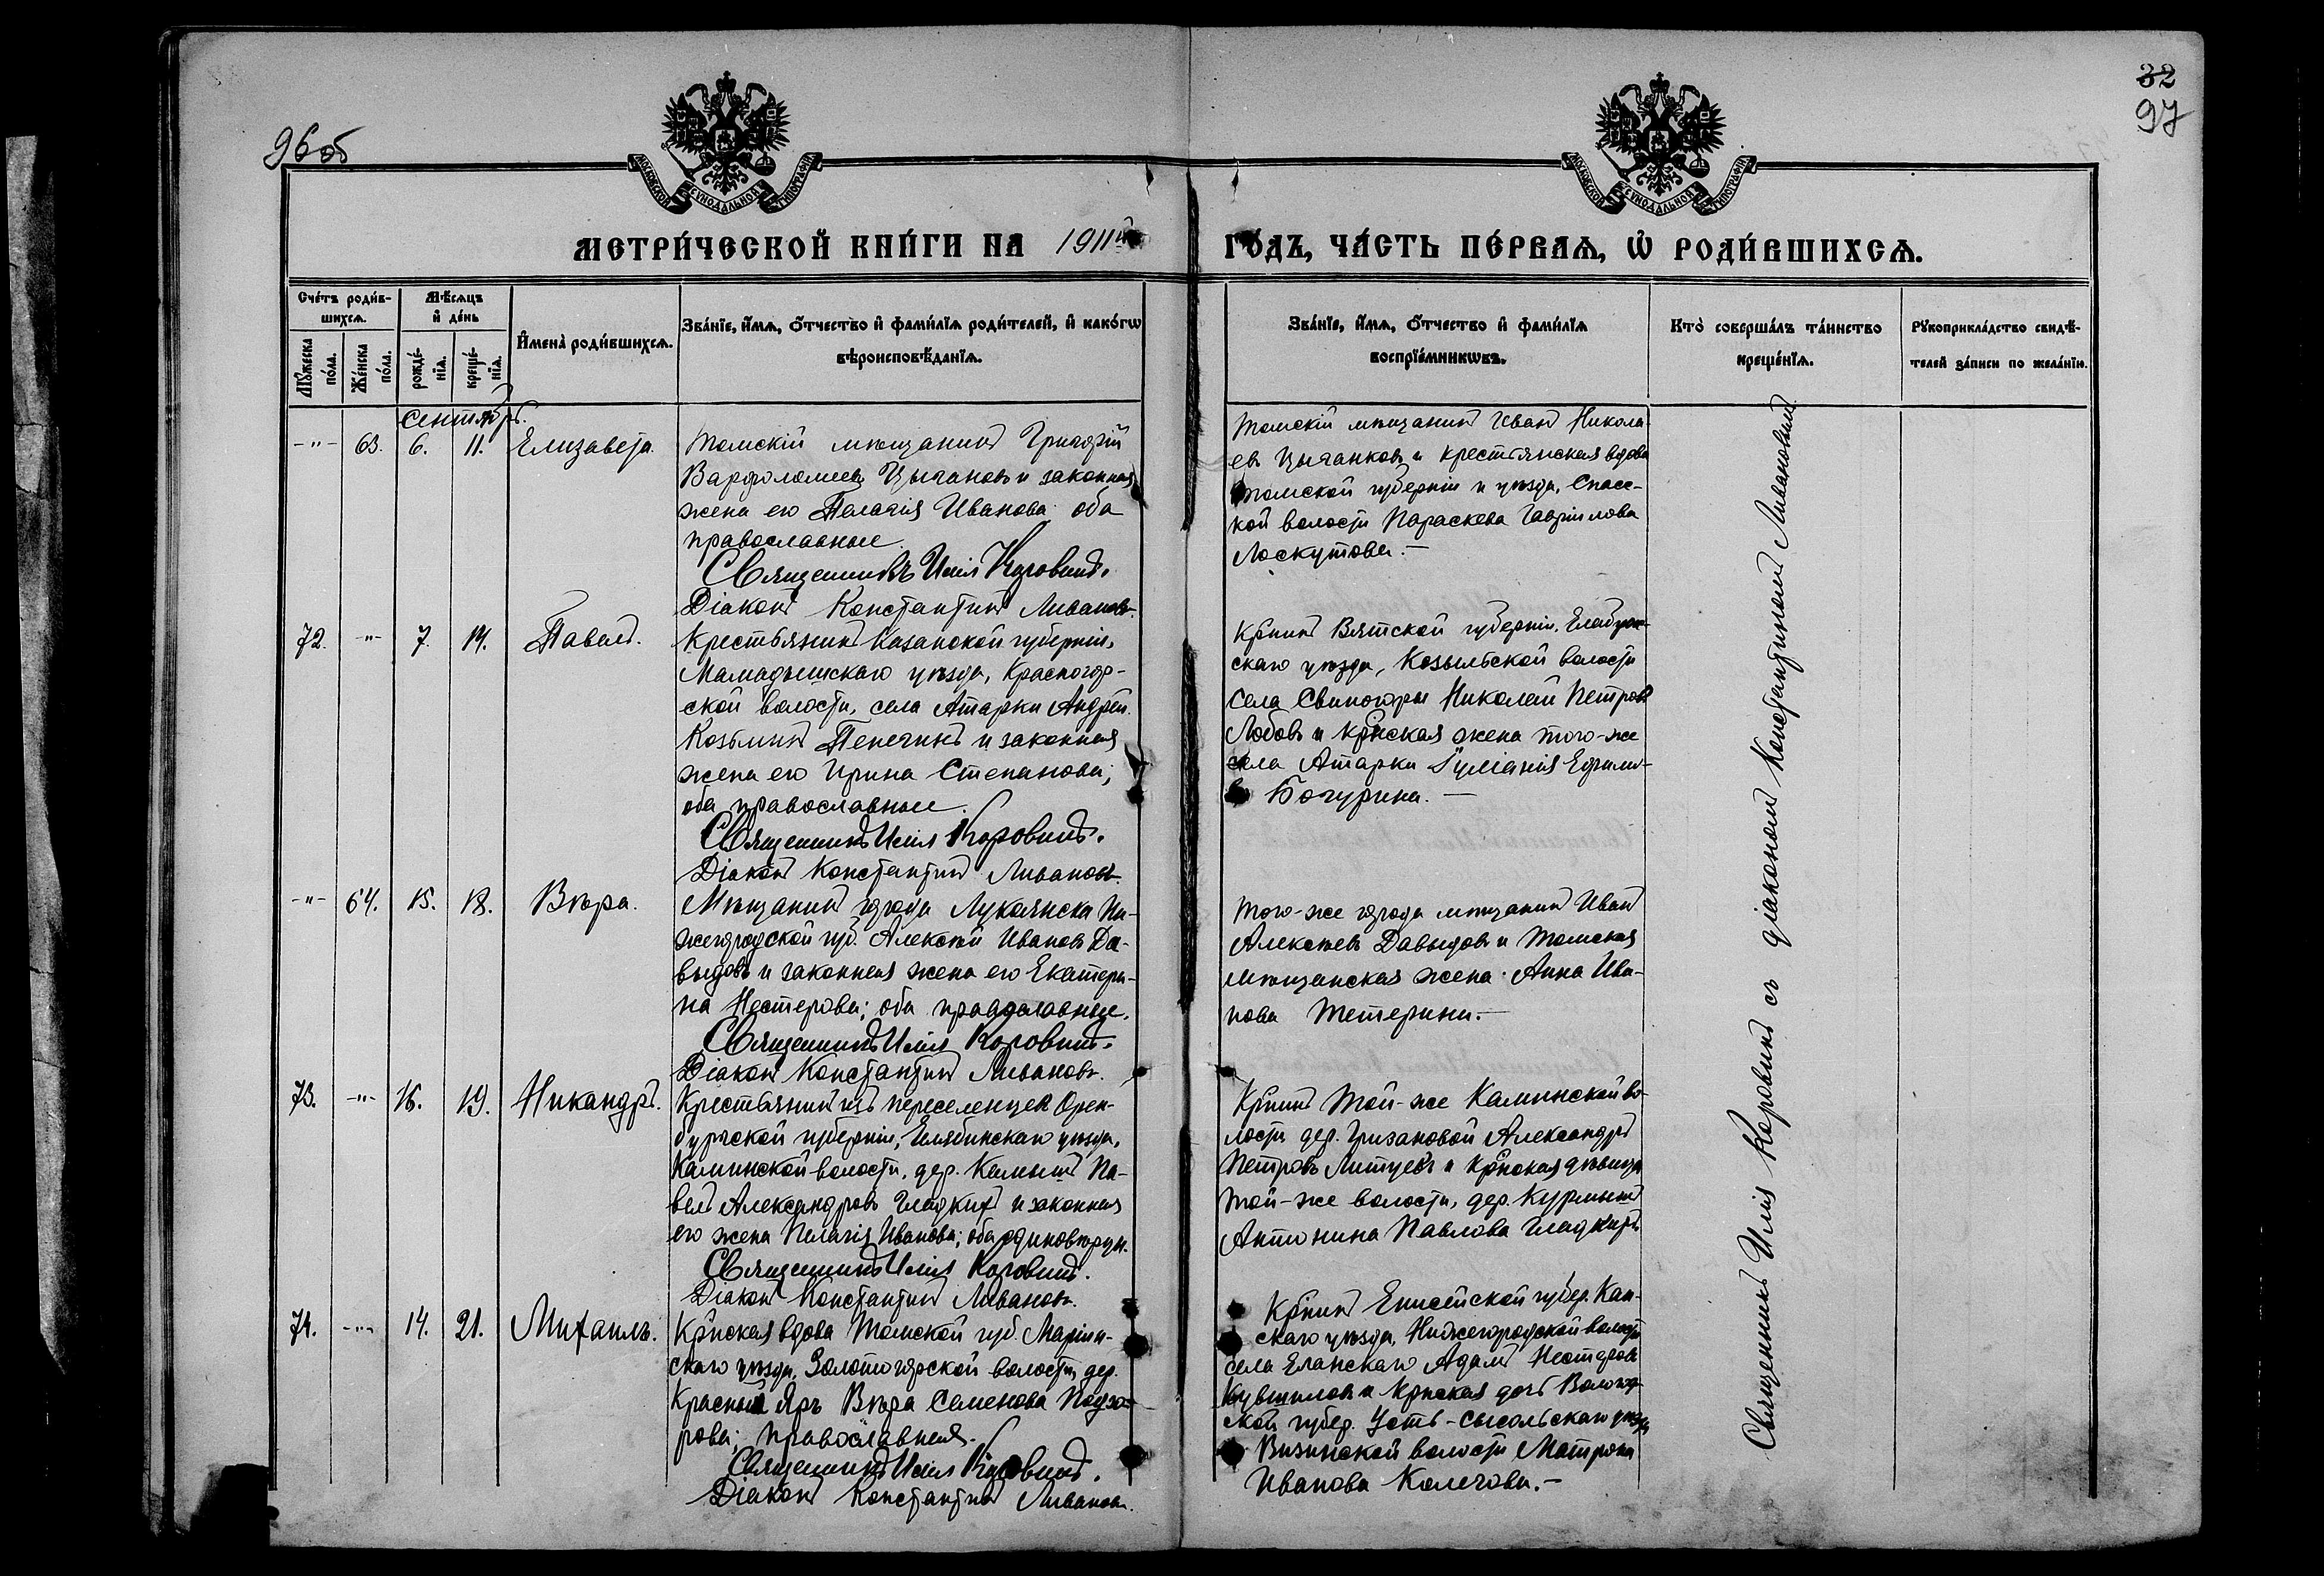 96об
32
97
МОСКОВСКОЙ СѴНОДАЛЬНОЙ ТИПОГРАФІИ
МОСКОВСКОЙ СѴНОДАЛЬНОЙ ТИПОГРАФІИ
МЕТРИ́ЧЕСКОЙ КНИ́ГИ НА 1911й ГО́ДЪ, ЧА́СТЬ ПЕ́РВАѦ, Ѡ҆ РОДИ́ВШИХСѦ.
Сче́тъ роди́в-
шихсѧ.
Мꙋ́жеска
по́ла.
Же́нска
по́ла.
Мѣ́сѧцъ
и҆ де́нь
рожде́-
нїѧ.
креще́-
нїѧ.
И҆мена̀ роди́вшихсѧ.
Зва́нїе, и҆́мѧ, ѻ҆́тчество и҆ фами́лїѧ роди́телей, и҆ како́гѡ
вѣроисповѣ́данїѧ.
Зва́нїе, и҆́мѧ, ѻ҆́тчество и҆ фами́лїѧ
воспрїе́мникѡвъ.
Кто̀ соверша́лъ та́инство
креще́нїѧ.
Рꙋкоприкла́дство свидѣ́-
телей за́писи по жела́нїю.
Сентябрь.
-"- 63. 6. 11. Елизавета.
Томскій мѣщанинъ Григорій
Варфоломеевъ Цыгановъ и законная
жена его Пелагія Иванова оба
православные.
Священникъ Илія Коровинъ.
Діаконъ Константинъ Ливановъ.
Томскій мѣщанинъ Иванъ Никола-
евъ Цыганковъ и крестьянская вдова
Томской губерніи и уѣзда, Спасс-
кой волости Параскева Гавріилова
Лоскутова.—
72. -"- 7. 14. Павелъ.
Крестьянинъ Казанской губерніи,
Мамадышскаго уѣзда, Красногор-
ской волости, села Атарки Андрей
Козьминъ Пенегинъ и законная
жена его Ирина Степанова;
оба православные.
Священникъ Илія Коровинъ.
Діаконъ Константинъ Ливановъ.
Кр̃нинъ Вятской губерніи, Елабуж-
скаго уѣзда, Козыльской волости
села Свиногоры Николай Петровъ
Лобовъ и кр̃нская жена того-же
села Атарки Іуліанія Ефимо-
ва Богурина.—
-"- 64. 15. 18. Вѣра.
Мѣщанинъ города Лукоянска Ни-
жегородской губ. Алексѣй Ивановъ Да-
выдовъ и законная жена его Екатери-
на Нестерова; оба православные.
Священникъ Илія Коровинъ.
Діаконъ Константинъ Ливановъ.
Того-же города мѣщанинъ Иванъ
Алексѣевъ Давыдовъ и Томская
мѣщанская жена Анна Ива-
нова Тетерина.—
73. -"- 16. 19. Никандръ.
Крестьянинъ изъ переселенцевъ Орен-
бургской губерніи, Челябинскаго уѣзда,
Каминской волости, дер. Камыши Па-
велъ Александровъ Гладкихъ и законная
его жена Пелагія Иванова; оба единовѣрцы.
Священникъ Илія Коровинъ.
Діаконъ Константинъ Ливановъ.
Кр̃нинъ той-же Каминской во-
лости дер. Гризановой Александръ
Петровъ и кр̃нская дѣвица
той-же волости, дер. Курмыши
Антонина Павлова Гладкихъ
74. -"- 14. 21. Михаилъ.
Кр̃нская вдова Томской губ. Маріин-
скаго уѣзда, Золотогорской волости, дер.
Красный Яръ Вѣра Семенова Подзо-
рова; православная.
Священникъ Илія Коровинъ.
Діаконъ Константинъ Ливановъ.
Кр̃нинъ Енисейской губер. Кан-
скаго уѣзда, Нижегородской волости
села Еланскаго Адамъ Нестеровъ
Кувшиловъ и кр̃нская дочь Волого-
ской губер. Усть-Сысольскаго уѣзда
Визинской волости Матрона
Иванова Калегова.—
Священникъ Илія Коровинъ съ діакономъ Константиномъ Ливановымъ